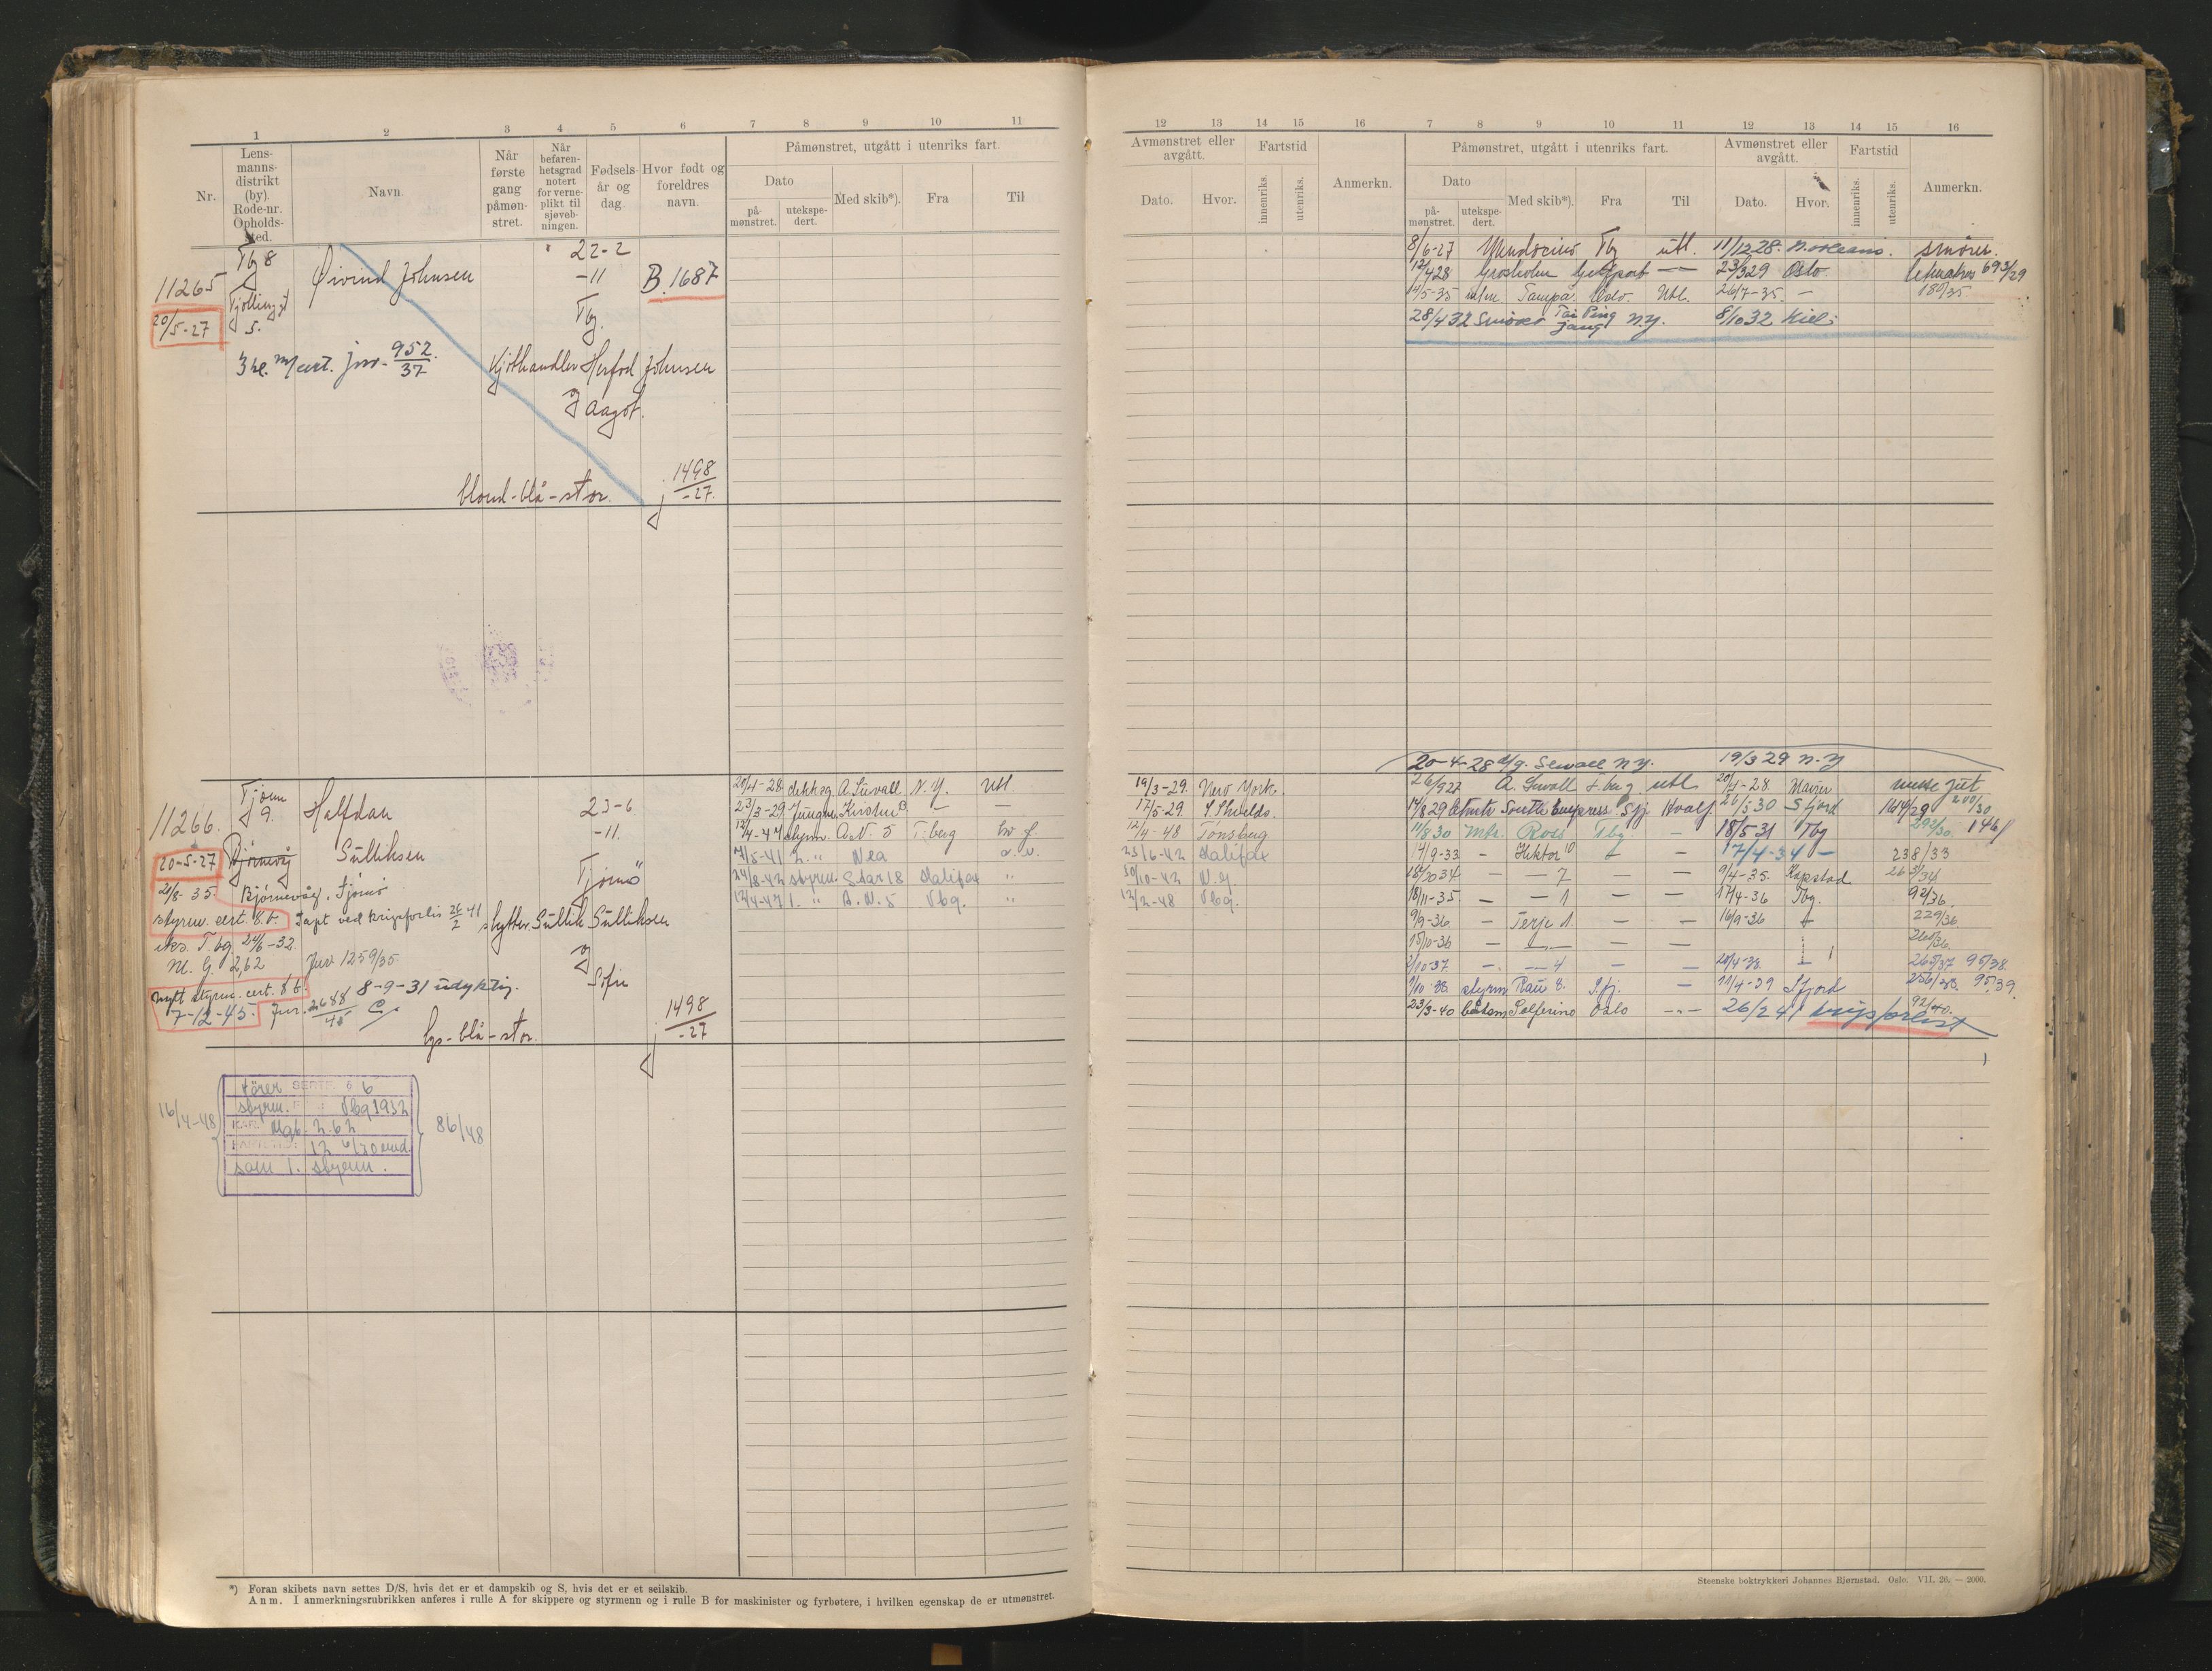 1 2 3 4 5 6 7 8 9 10 11
Nr.
Lens-
manns-
distrikt
(by).
Rode-nr.
Opholds-
sted.
Navn.
Når
første
gang
påmøn-
stret.
Når
befaren-
hetsgrad
notert
for verne-
plikt til
sjøveb-
ningen.
Fødsels-
år og
dag
Hvor født og
foreldres
navn.
Påmønstret, utgått i utenriks fart.
Dato
på-
mønstret.
utekspe-
dert.
Med skib*).
Fra
Til
11265
Tbg 8
Øivind Johnsen
22-2
-11
B. 1687
20/5-27
Tjølling
5.
Tbg.
952/37
Kjøthandler Herfod Johnsen
Aagot.
blond-blå-stor.
j 1498/-27.
11266.
Tjøm
9.
Halfdan
Sülliksen
23-6
-11.
20-5-27
Bjørnevåg
Bjørnevåg, Tjømø
Tjømö
styrm. cert.
Tapt ved krigsforlis 26/2-41
skytter Süllik Sülliksen
eks. T.bg 24/6-32.
H. G. 2,62
Jnr 1259/35
Sofie
Nytt styrm. cert.
8-9-31 udyktig.
7-12-45.
Jnr. 2688/45
lys-blå-stor.
j 1498/-27
20/4-28 dekksg. A. Sewall N.Y. Utl.
23/3-29 Jungm. Kirsten B — —
12/4-47 styrm. A.N. 5 T.berg
7/5-41 2. " Nea
24/8-42 styrm. Star 18 Halifax "
12/4-47 1. " A.N. 5 Tbg. "
16/4-48
fører SERTF. 6
styrm. Tbg 1932
Mgb. 2.62
12 6/30 mnd.
som 1. styrm.
86/48
*) Foran skibets navn settes D/S, hvis det er et dampskib og S, hvis det er et seilskib.
Anm. I anmerkningsrubrikken anføres i rulle A for skippere og styrmenn og i rulle B for maskinister og fyrbøtere, i hvilken egenskap de er utmønstret.
12 13 14 15 16 7 8 9 10 11 12 13 14 15 16
Avmønstret eller
avgått.
Dato.
Hvor.
Fartstid
innenriks.
utenriks.
Anmerkn.
Påmønstret, utgått i utenriks fart.
Dato
på-
mønstret.
utekspe-
dert.
Med skib*).
Fra
Til
Avmønstret eller
avgått.
Dato.
Hvor.
Fartstid
innenriks.
utenriks.
Anmerkn.
8/6-27 Mendocino Tbg utl. 11/12 28. N. Orleans. smører.
12/4 28 Grosholm Gulfport — 23/3 29 Oslo. letmatros 693/29
Tampa. Oslo. Utl. 26/7-35. — 180/35
28/4 32 Smører Tai Ping Yang N.Y. 8/10 32 Kiel.
20-4-28 Sewall N.Y. 19/3 29 N.Y
26/9 27 A. Sewall T.berg utl 20/4-28.
19/3-29. New York.
17/5-29. S. Shields.
12/4-48 Tønsberg
23/6-42 Halifax
30/10-42 N.Y.
12/2-48 Tbg.
14/8 29 South Express Sfj. Hvalf. 26/5 30 Sfjord 1614/29 200/30
11/8 30 Mtr. Ross Tbg — 18/5 31 Tbg 292/30. 146
14/9-33 — Hektor 10 — — 17/4-34 — 238/33
— — 7 — — 9/4-35. Kapstad 263/34
18/11-35. — — 1 — — 17/4-36 Tbg. 92/36.
9/9-36 — Terje 1. — — 16/9-36 229/36
15/10-36 — — — — 260/36.
2/10-37 — — 4 — — 20/4-38. 265/37 95/38.
1/10-38. styrm Rau 8. Sfj. — 11/4-39 Sfjord 256/38. 95/39.
23/3-40 båtsm Solferino Oslo — 26/2 41 krigsforlist 92/40.
Steenske boktrykkeri Johannes Bjørnstad. Oslo. VII. 26. — 2000.